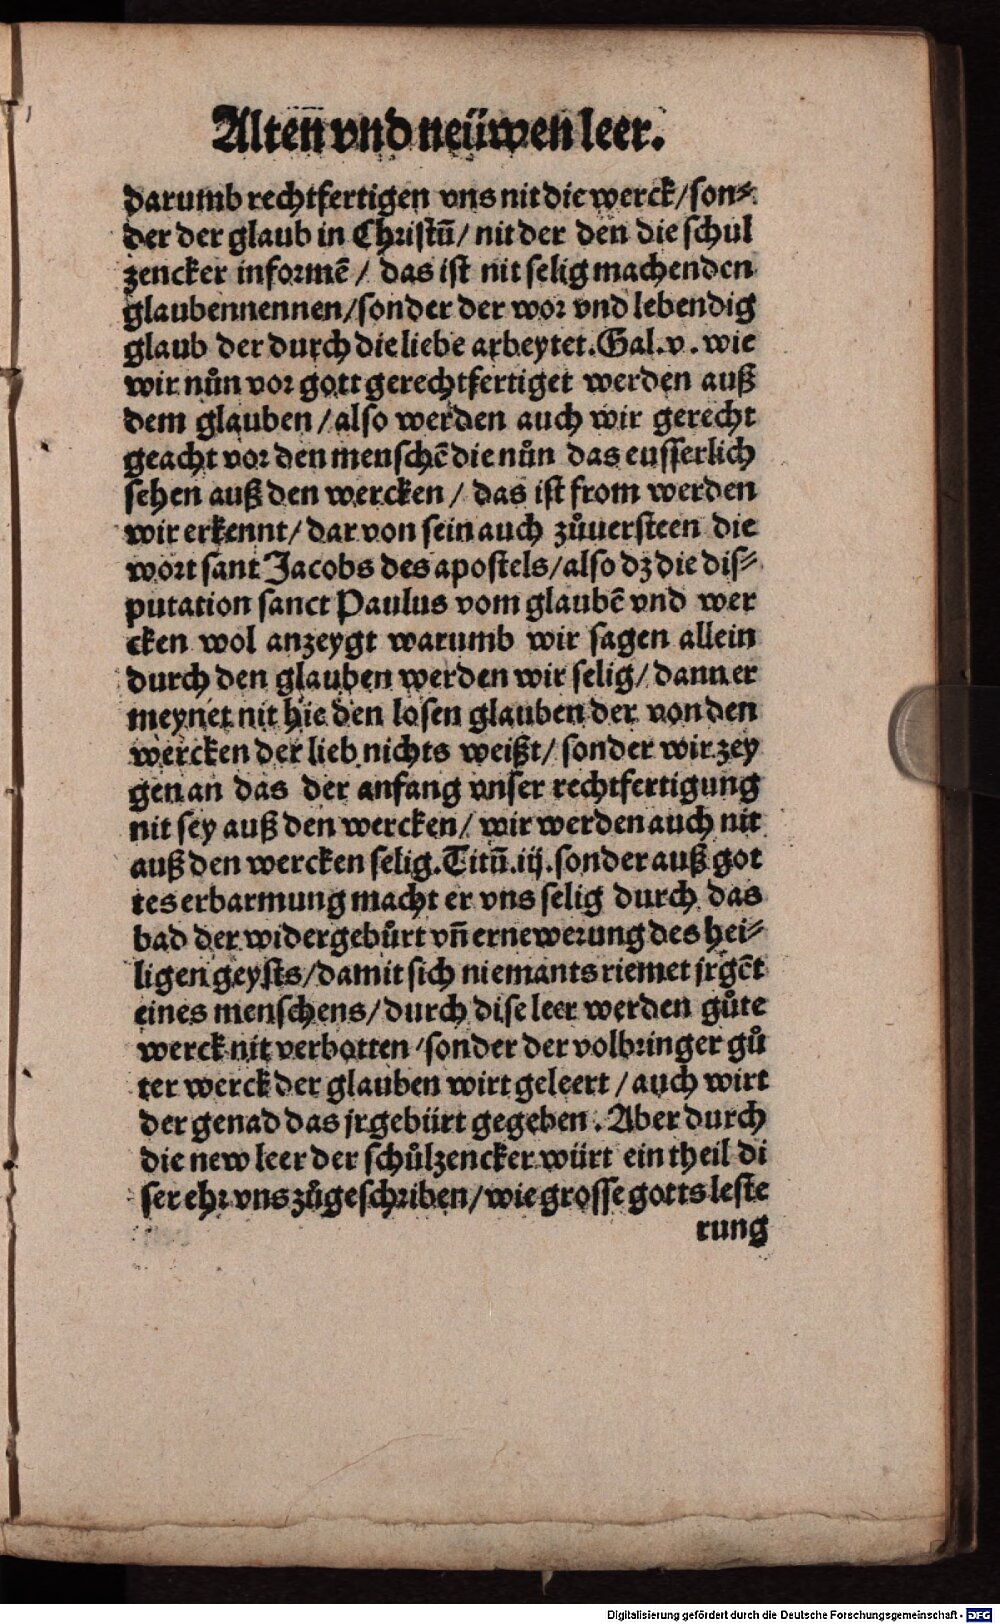 Alteñ vnd neüwen leer.
darumb rechtfertigen vns nit die werck/son⸗
der der glaub in Christū/ nit der den die schul
zencker informē/ das ist nit selig machenden
glauben nennen/sonder der wor vnd lebendig
glaub der durch die liebe arbeytet. Gal.v. wie
wir nůn vor gott gerechtfertiget werden auß
dem glauben/also werden auch wir gerecht
geacht vor den menschē die nůn das eusserlich
sehen auß den wercken/ das ist from werden
wir erkennt/ dar von sein auch zůuersteen die
wort sant Jacobs des apostels/also dz die dis⸗
putation sanct Paulus vom glaubē vnd wer
cken wol anzeygt warumb wir sagen allein
durch den glauben werden wir selig/ dann er
meynet nit hie den losen glauben der von den
wercken der lieb nichts weißt/ sonder wir zey
gen an das der anfang vnser rechtfertigung
nit sey auß den wercken/ wir werden auch nit
auß den wercken selig. Titū.iij. sonder auß got
tes erbarmung macht er vns selig durch das
bad der widergebůrt vñ ernewerung des hei⸗
ligen geysts/damit sich niemants riemet jrgēt
eines menschens/durch dise leer werden gůte
werck nit verbotten/sonder der volbringer gů
ter werck der glauben wirt geleert/auch wirt
der genad das jr gebürt gegeben. Aber durch
die new leer der schůlzencker würt ein theil di
ser ehr vns zůgeschriben/wie grosse gotts leste
rung
Digitalisierung gefördert durch die Deutsche Forschungsgemeinschaft - DFG